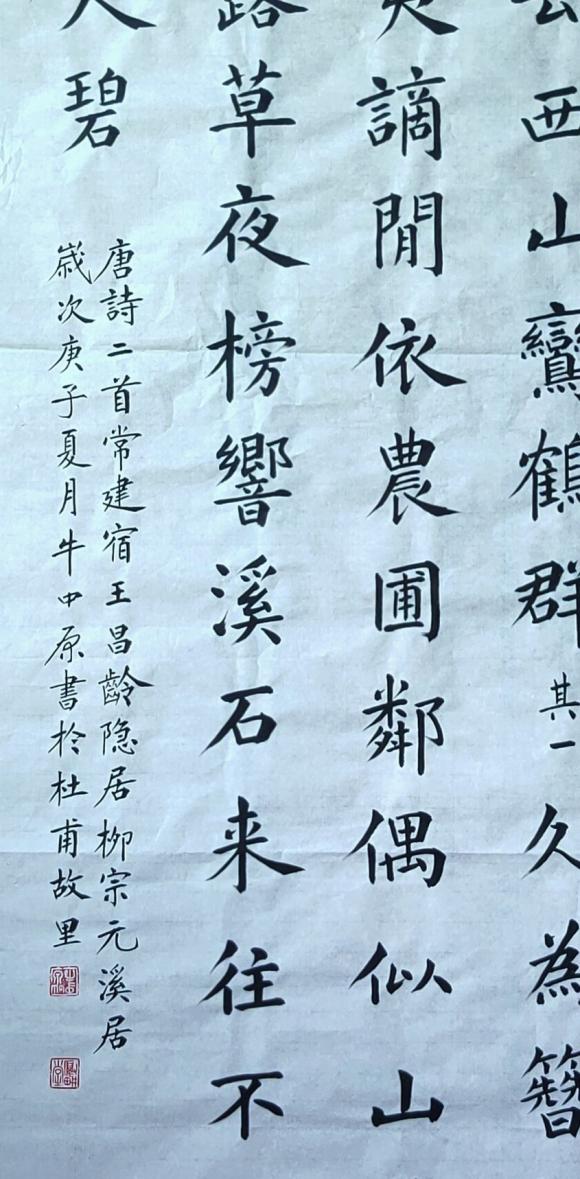 西山鸞鶴群其一久為簪
謫閒依農圃鄰偶似山
草夜榜響溪石来往不
碧
唐詩二首常建宿王昌齡隐居柳宗元溪居
歲次庚子夏月牛中原書於杜甫故里